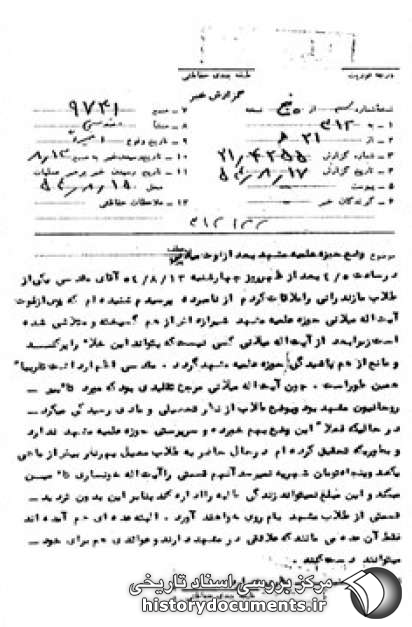 درجه فوریت
طبقه بندی حفاظتی
گزارش خبر
نسخه شماره از پنج نسخه
۱ - به ۳۱۲
۲ - از ۲۱ ه ۸
۳ - شماره گزارش ۲۱/۴۲۵۵
۴ - تاریخ گزارش ۵۴/۸/۱۷
۵ - پیوست
۶ - گیرندگان خبر
۷ - منبع ۹۷۴۱
۸ - منشأ
۹ - تاریخ وقوع
۱۰ - تاریخ رسیدن خبر به منبع ۸/۱۳
۱۱ - تاریخ رسیدن خبر به رهبر عملیات
محل ۵۴/۸/۱۵
۱۲ - ملاحظات حفاظتی
موضوع وضع حوزه علمیه مشهد بعد از فوت میلانی
در ساعت ۴/۵ بعد از ظهر روز چهارشنبه ۵۴/۸/۱۳ آقای مقدسی یکی از
طلاب مازندرانی را ملاقات کردم از نامبرده پرسیدم شنیده ام که پس از فوت
آیت اله میلانی حوزه علمیه مشهد شیرازه اش از هم گسیخته و متلاشی شده
است زیرا بعد از آیت اله میلانی کسی نیست که بتواند این خلاء را پر کند
و مانع از هم پاشیدگی حوزه علمیه مشهد گردد . مقدسی اظهار داشت تقریبا
همین طور است . چون آیت اله میلانی مرجع تقلیدی بود که مورد
روحانیون مشهد بود و بوضع طلاب از نظر تحصیلی و مادی رسیدگی میکرد
در حالیکه فعلا این وضع بهم خورده و سرپرستی حوزه علمیه مشهد ندارد
و بطوریکه تحقیق کرده ام در حال حاضر به طلاب معیل بهر نفر بیش از ماهی
یکصد و پنجاه تومان شهریه نمیرسد آنهم قسمتی را آیت اله خونساری تامین
میکند و این مبلغ نمیتواند زندگی طلبه را اداره کند بنابر این بدون تردید
قسمتی از طلاب مشهد بقم روی خواهند آورد . البته عده ای هم آمده اند
فقط آن عده می مانند که علاقه در مشهد دارند و عوائدی هم برای خود
میتوانند دست کنند .
مرکز بررسی اسناد تاریخی
historydocuments.ir